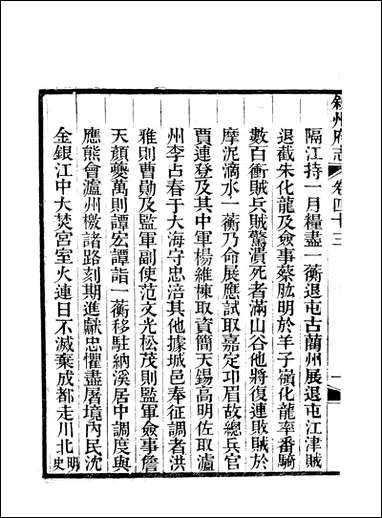 敘州府志 卷四十三
隔江持一月糧盡一蘅退屯古藺州展退屯江津賊
退截朱化龍及僉事蔡肱明於羊子嶺化龍率番騎
數百衝賊兵賊驚潰死者滿山谷他將復連敗賊於
摩泥滴水一蘅乃命展應試取嘉定卭眉故總兵官
賈連登及其中軍楊維棟取資簡天錫高明佐取瀘
州李占春于大海守忠涪其他據城邑奉征調者洪
雅則曹勛及監軍副使范文光松茂則監軍僉事詹
天顏夔萬則譚宏譚詣一蘅移駐納溪居中調度與
應熊會瀘州檄諸路刻期進獻忠懼盡屠境內民沈
金銀江中大焚宮室火連日不滅棄成都走川北明史